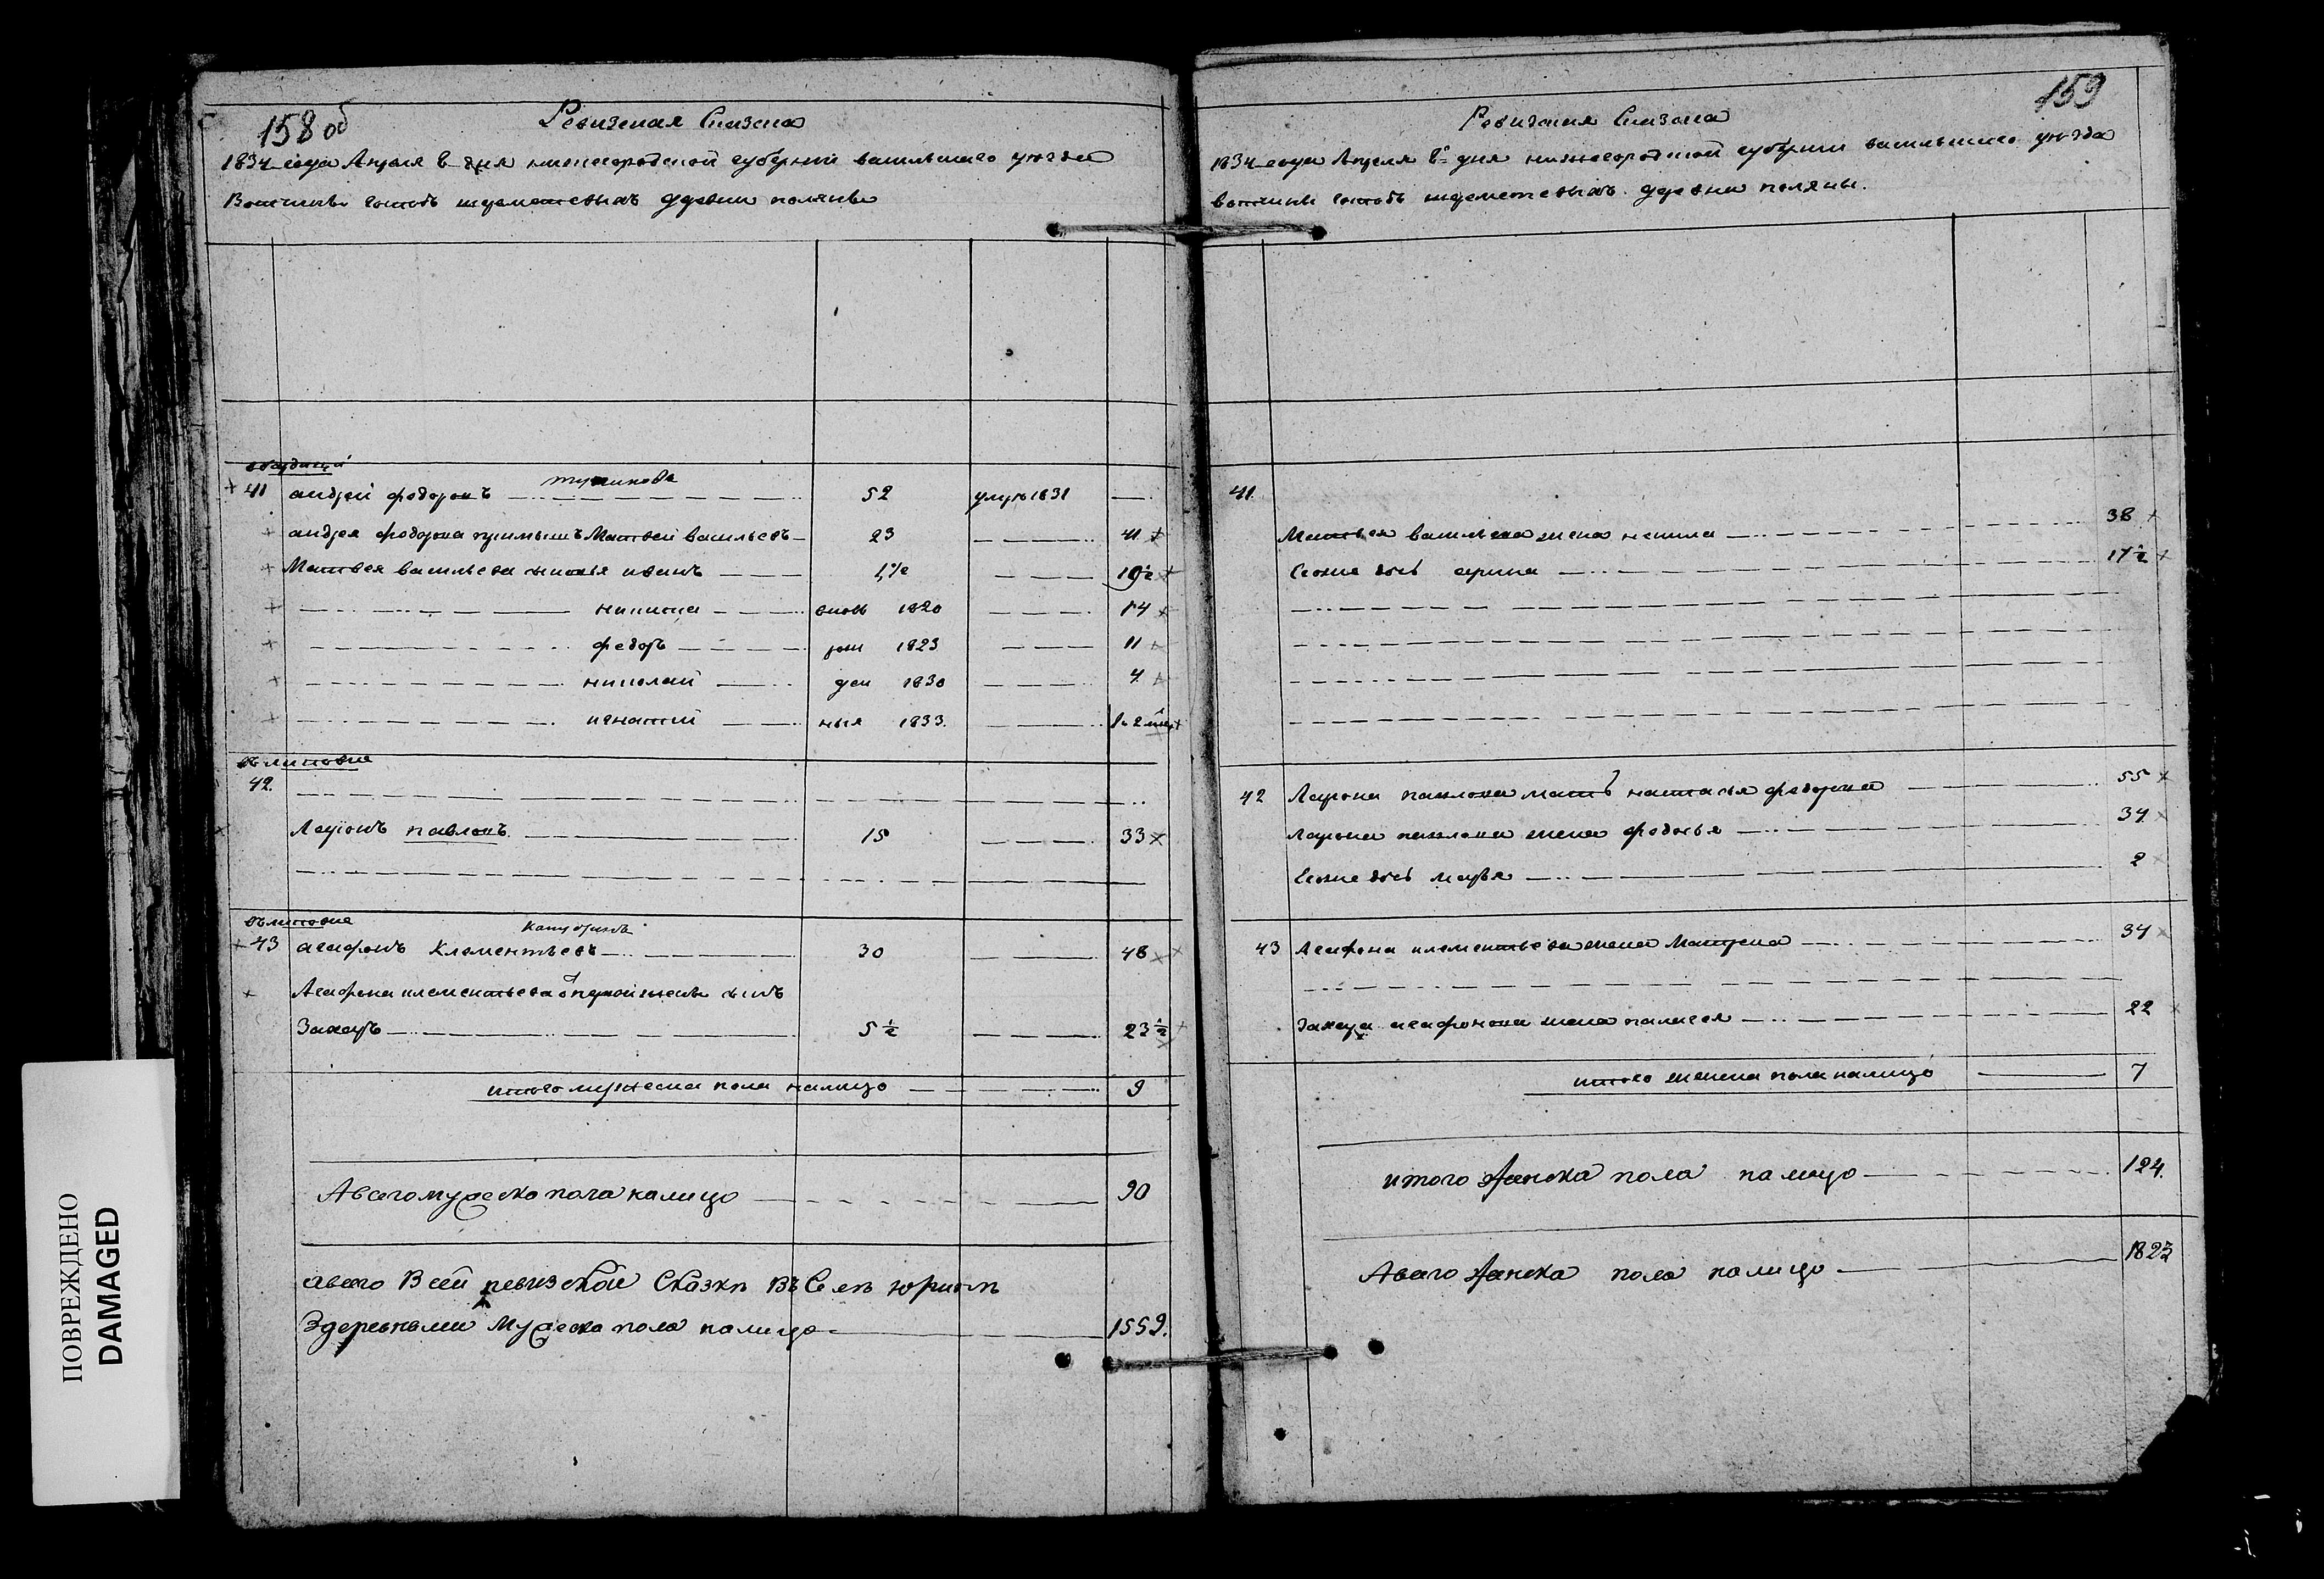 158 об
Ревизская Сказка
1834 года Апреля 8 дня нижегородской губернии васильскаго уезда
Вотчины Господъ шереметевыхъ деревни поляны
41 андрей федоровъ 52 умре 1831
андрея федорова приимышъ Матвей васильевъ 23 41
Матвея васильева сыновья иванъ 1½ 19½
никита вновь 1820 14
федоръ рож 1823 11
николай 1830 4
игнатий 1833
42.
Ларионъ павловъ 15 33
43 агафонъ Клементьевъ 30 48
Агафона клементьева от первой жены сынъ
Захаръ 5½ 23½
итого мужеска пола налицо 9
Авсего мужеска пола налицо 90
авсего Всей ревиской Сказки Въ Селе юрине
Здеревнями Мужеска пола налицо 1559.
159
Ревизская Сказка
1834 года Апреля 8 дня нижегородской губернии васильскаго уезда
вотчины Господъ шереметевыхъ деревни поляны.
41.
Матвея васильева жена ненила 38
Ево же дочь арина 17½
42 Лариона павлова мать настасья федорова 55
лариона павлова жена федосья 34
Ево же дочь марья 2
43 Агафона клементьева жена Матрена 34
Захара агафонова жена палагея 22
итого женска пола налицо 7
итого женска пола налицо 124.
Авсего женска пола налицо 1823
ПОВРЕЖДЕНО
DAMAGED